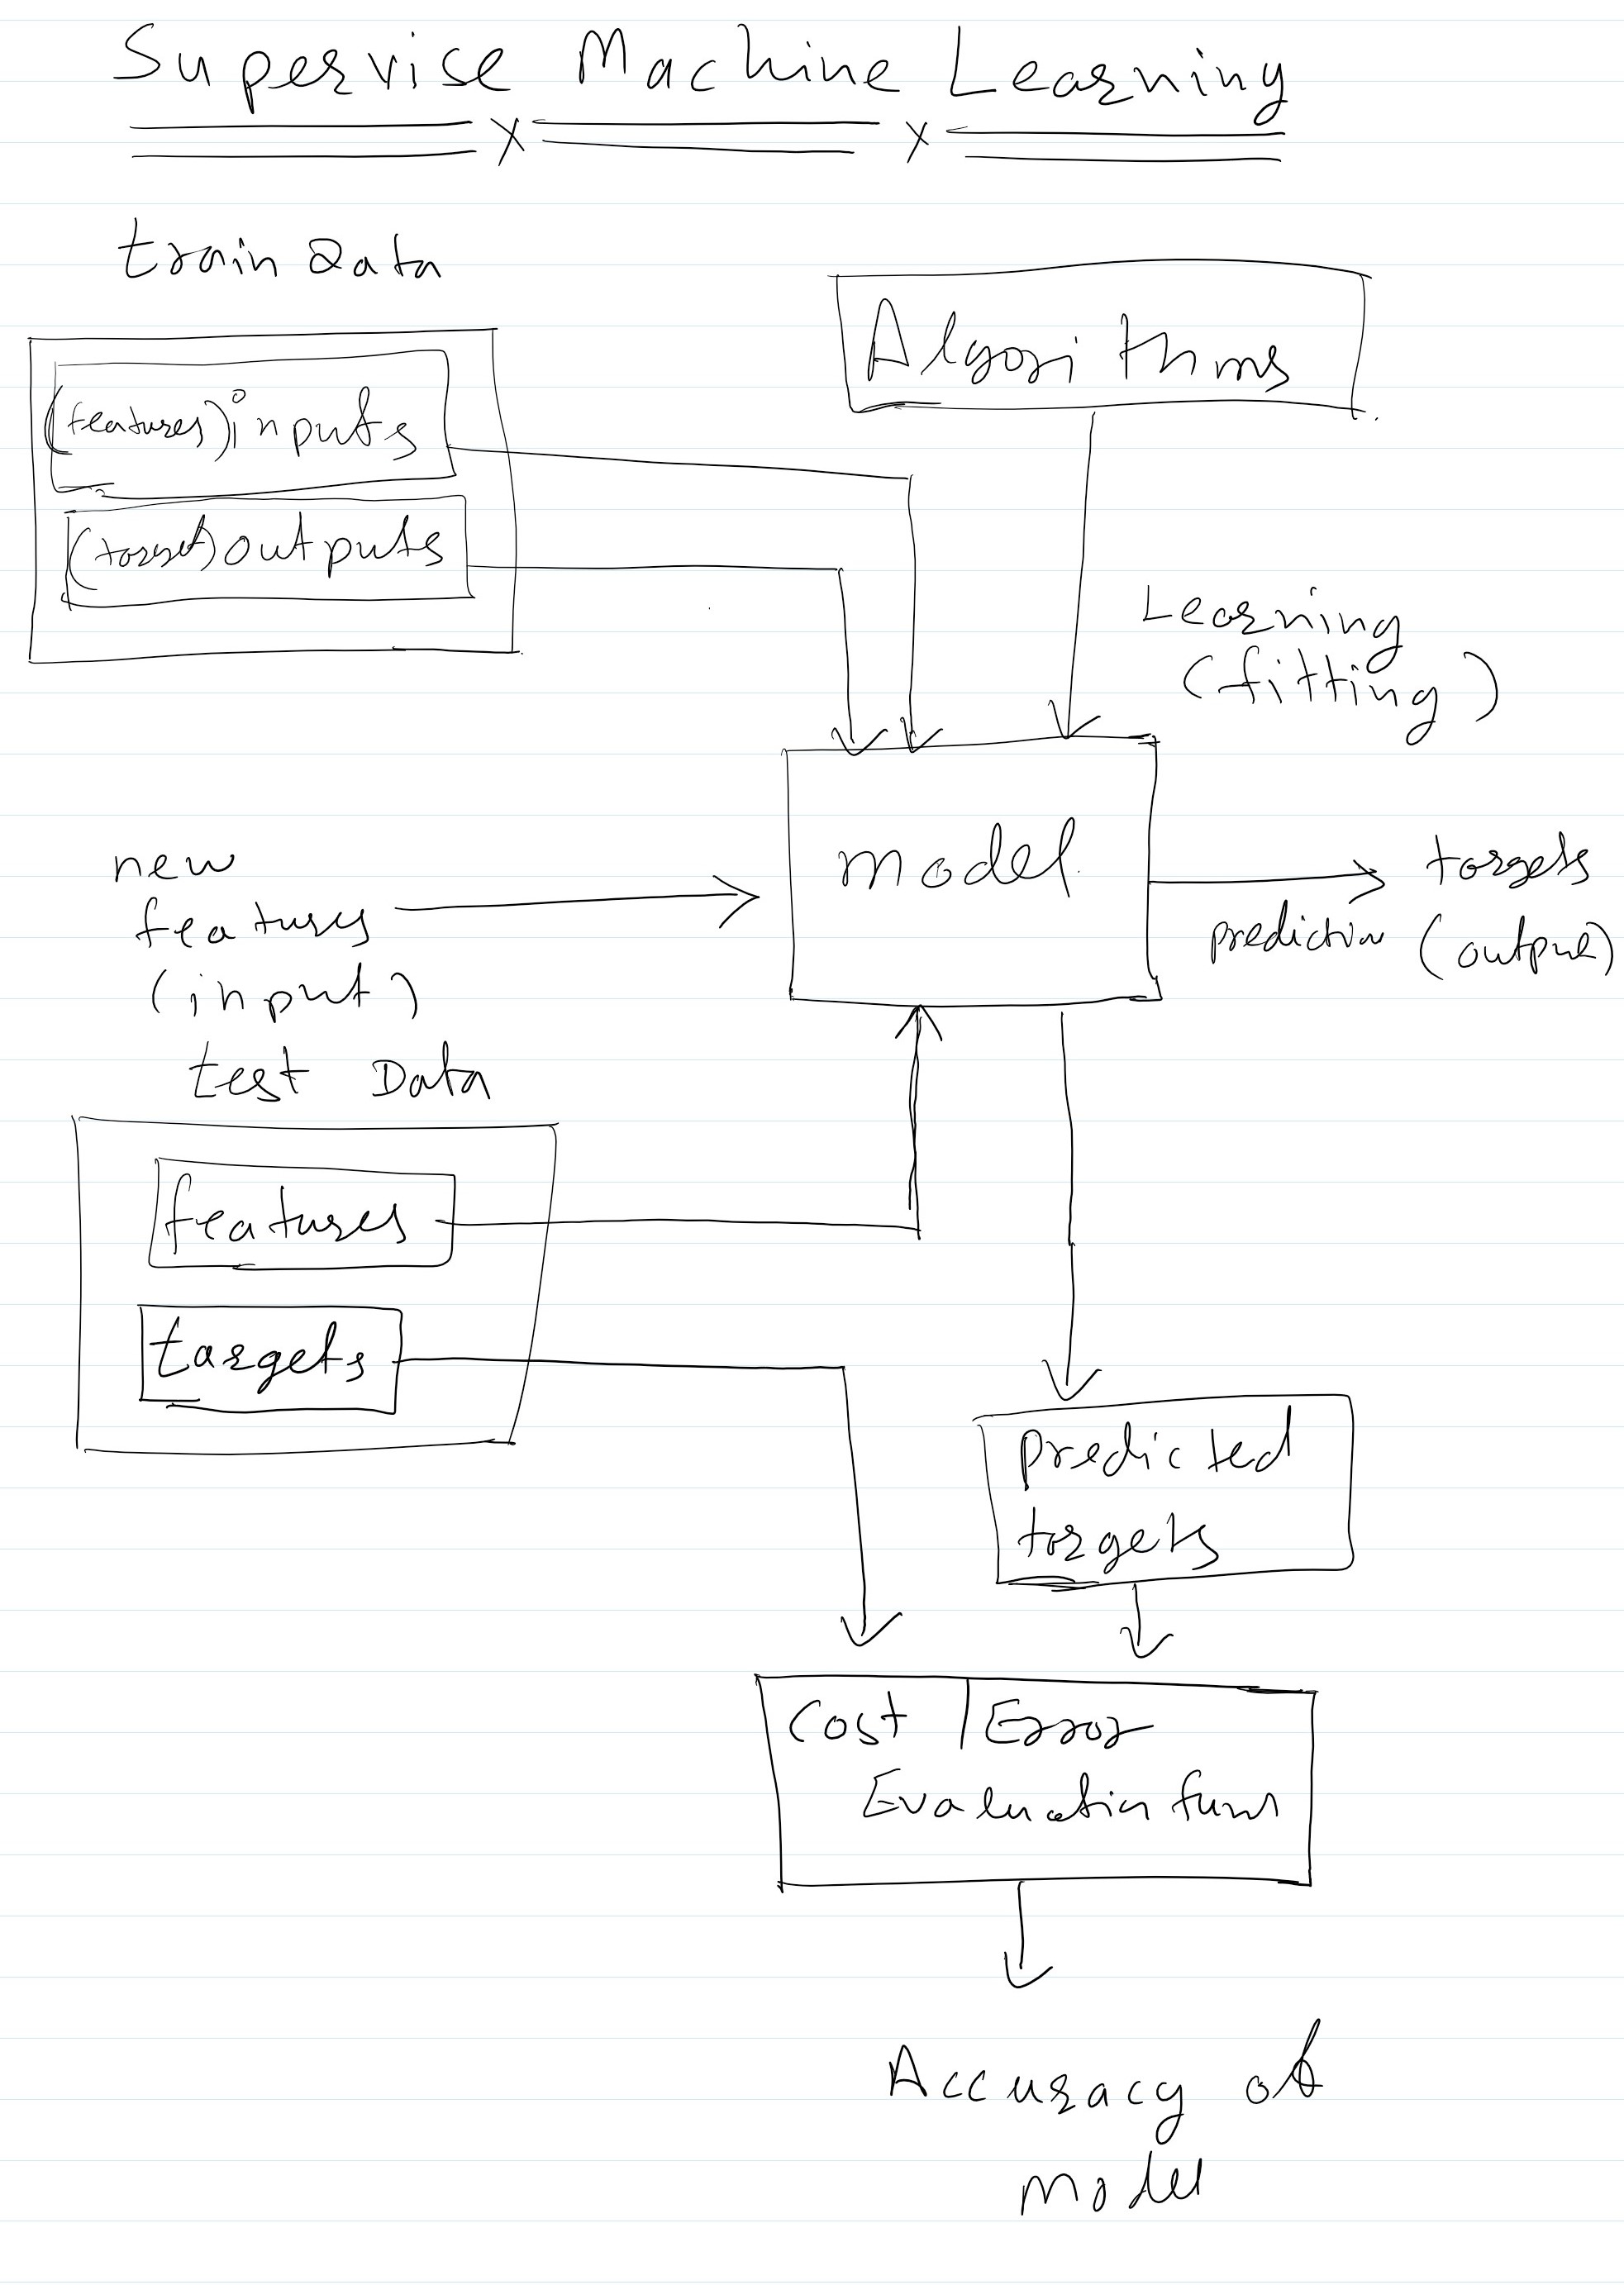 Supervise Machine Learning
train Data
Algorithms
(features) inputs
(target) outputs
Learning
(fitting)
model
new
features
(input)
targets
prediction (output)
test Data
features
targets
predicted
targets
Cost | Error
Evaluation func
Accuracy of
model